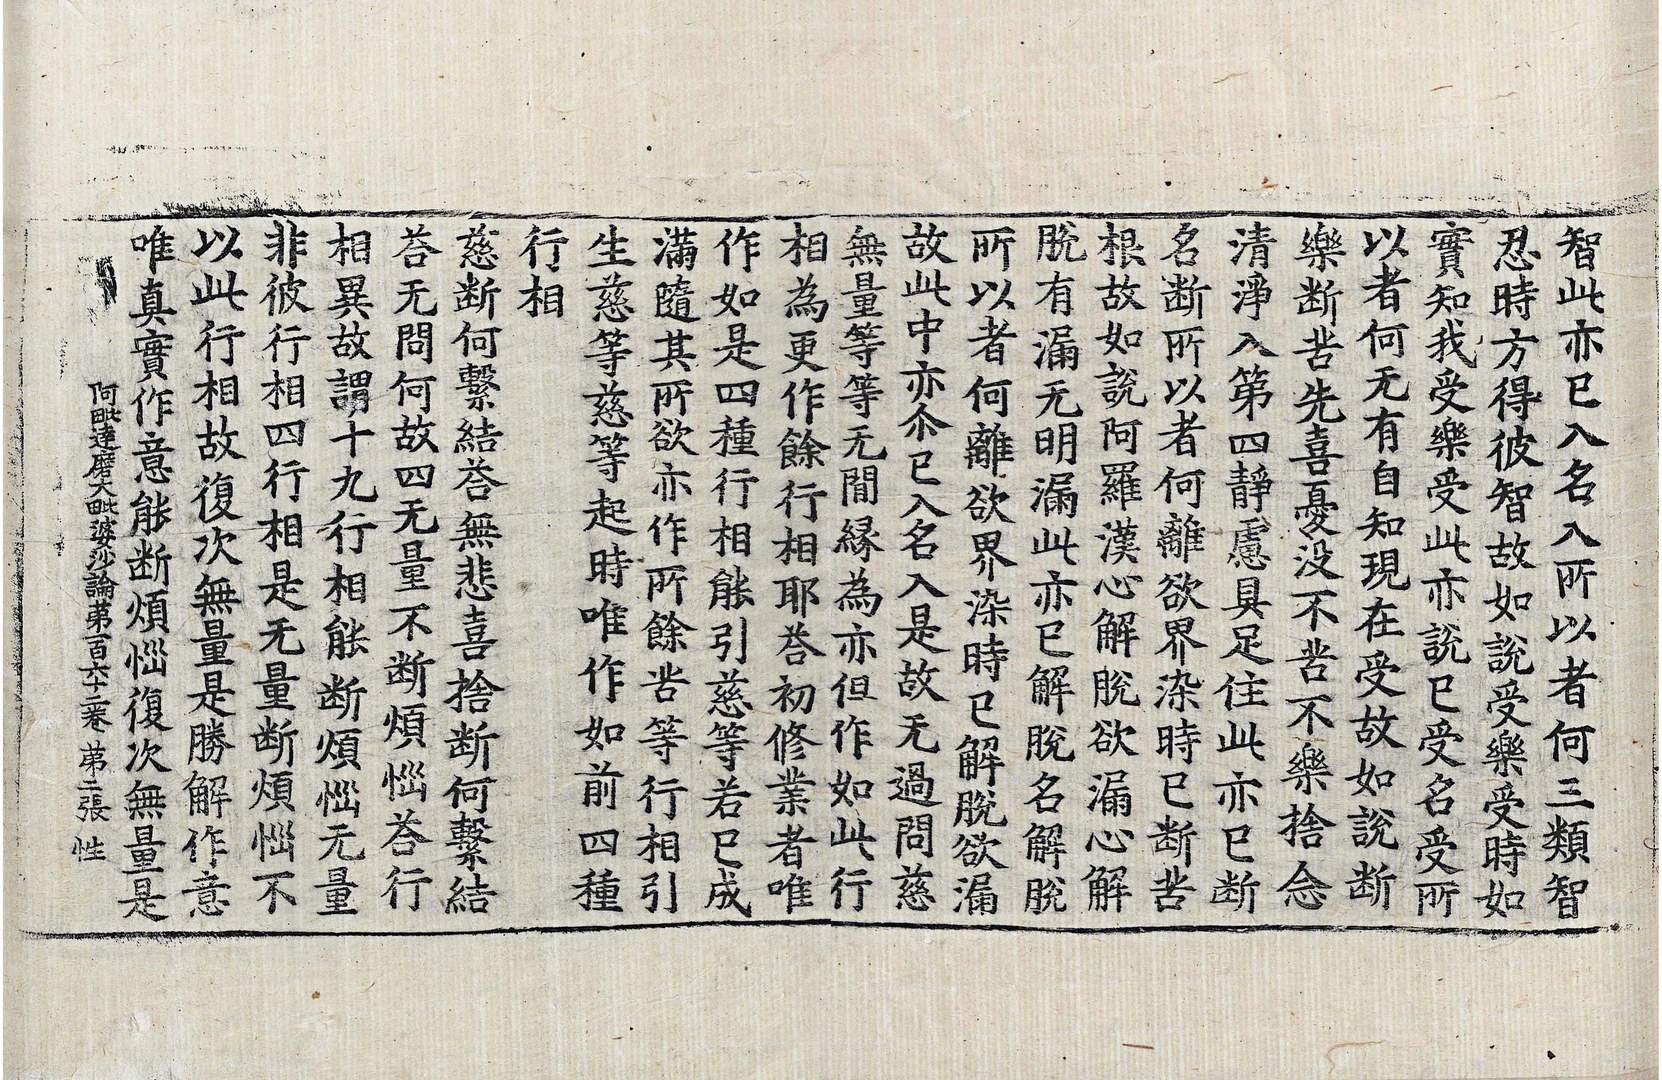 智此亦已入名入所以者何三類智
忍時方得彼智故如說受樂受時如
實知我受樂受此亦說已受名受所
以者何无有自知現在受故如說断
樂断苦先喜憂没不苦不樂捨念
清淨入第四靜慮具足住此亦已断
名断所以者何離欲界染時已断苦
根故如說阿羅漢心解脫欲漏心解
脫有漏无明漏此亦已解脫名解脫
所以者何離欲界染時已解脫欲漏
故此中亦尒已入名入是故无過問慈
無量等等无間縁為亦但作如此行
相為更作餘行相耶荅初修業者唯
作如是四種行相能引慈等若已成
滿隨其所欲亦作所餘苦等行相引
生慈等慈等起時唯作如前四種
行相
慈断何繫結荅無悲喜捨断何繫結
荅无問何故四无量不断煩惱荅行
相異故謂十九行相能断煩惱无量
非彼行相四行相是无量断煩惱不
以此行相故復次無量是勝解作意
唯真實作意能断煩惱復次無量是
阿毗達磨大毗婆沙論第百六十二卷 第二張 性